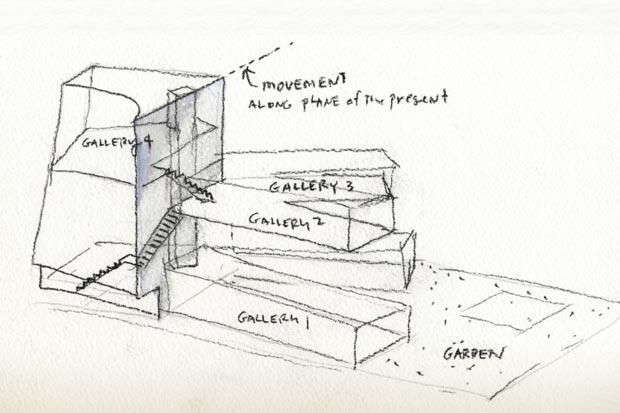 MOVEMENT
ALONG PLANE of the present
GALLERY 4
GALLERY 3
GALLERY 2
GALLERY 1
GARDEN